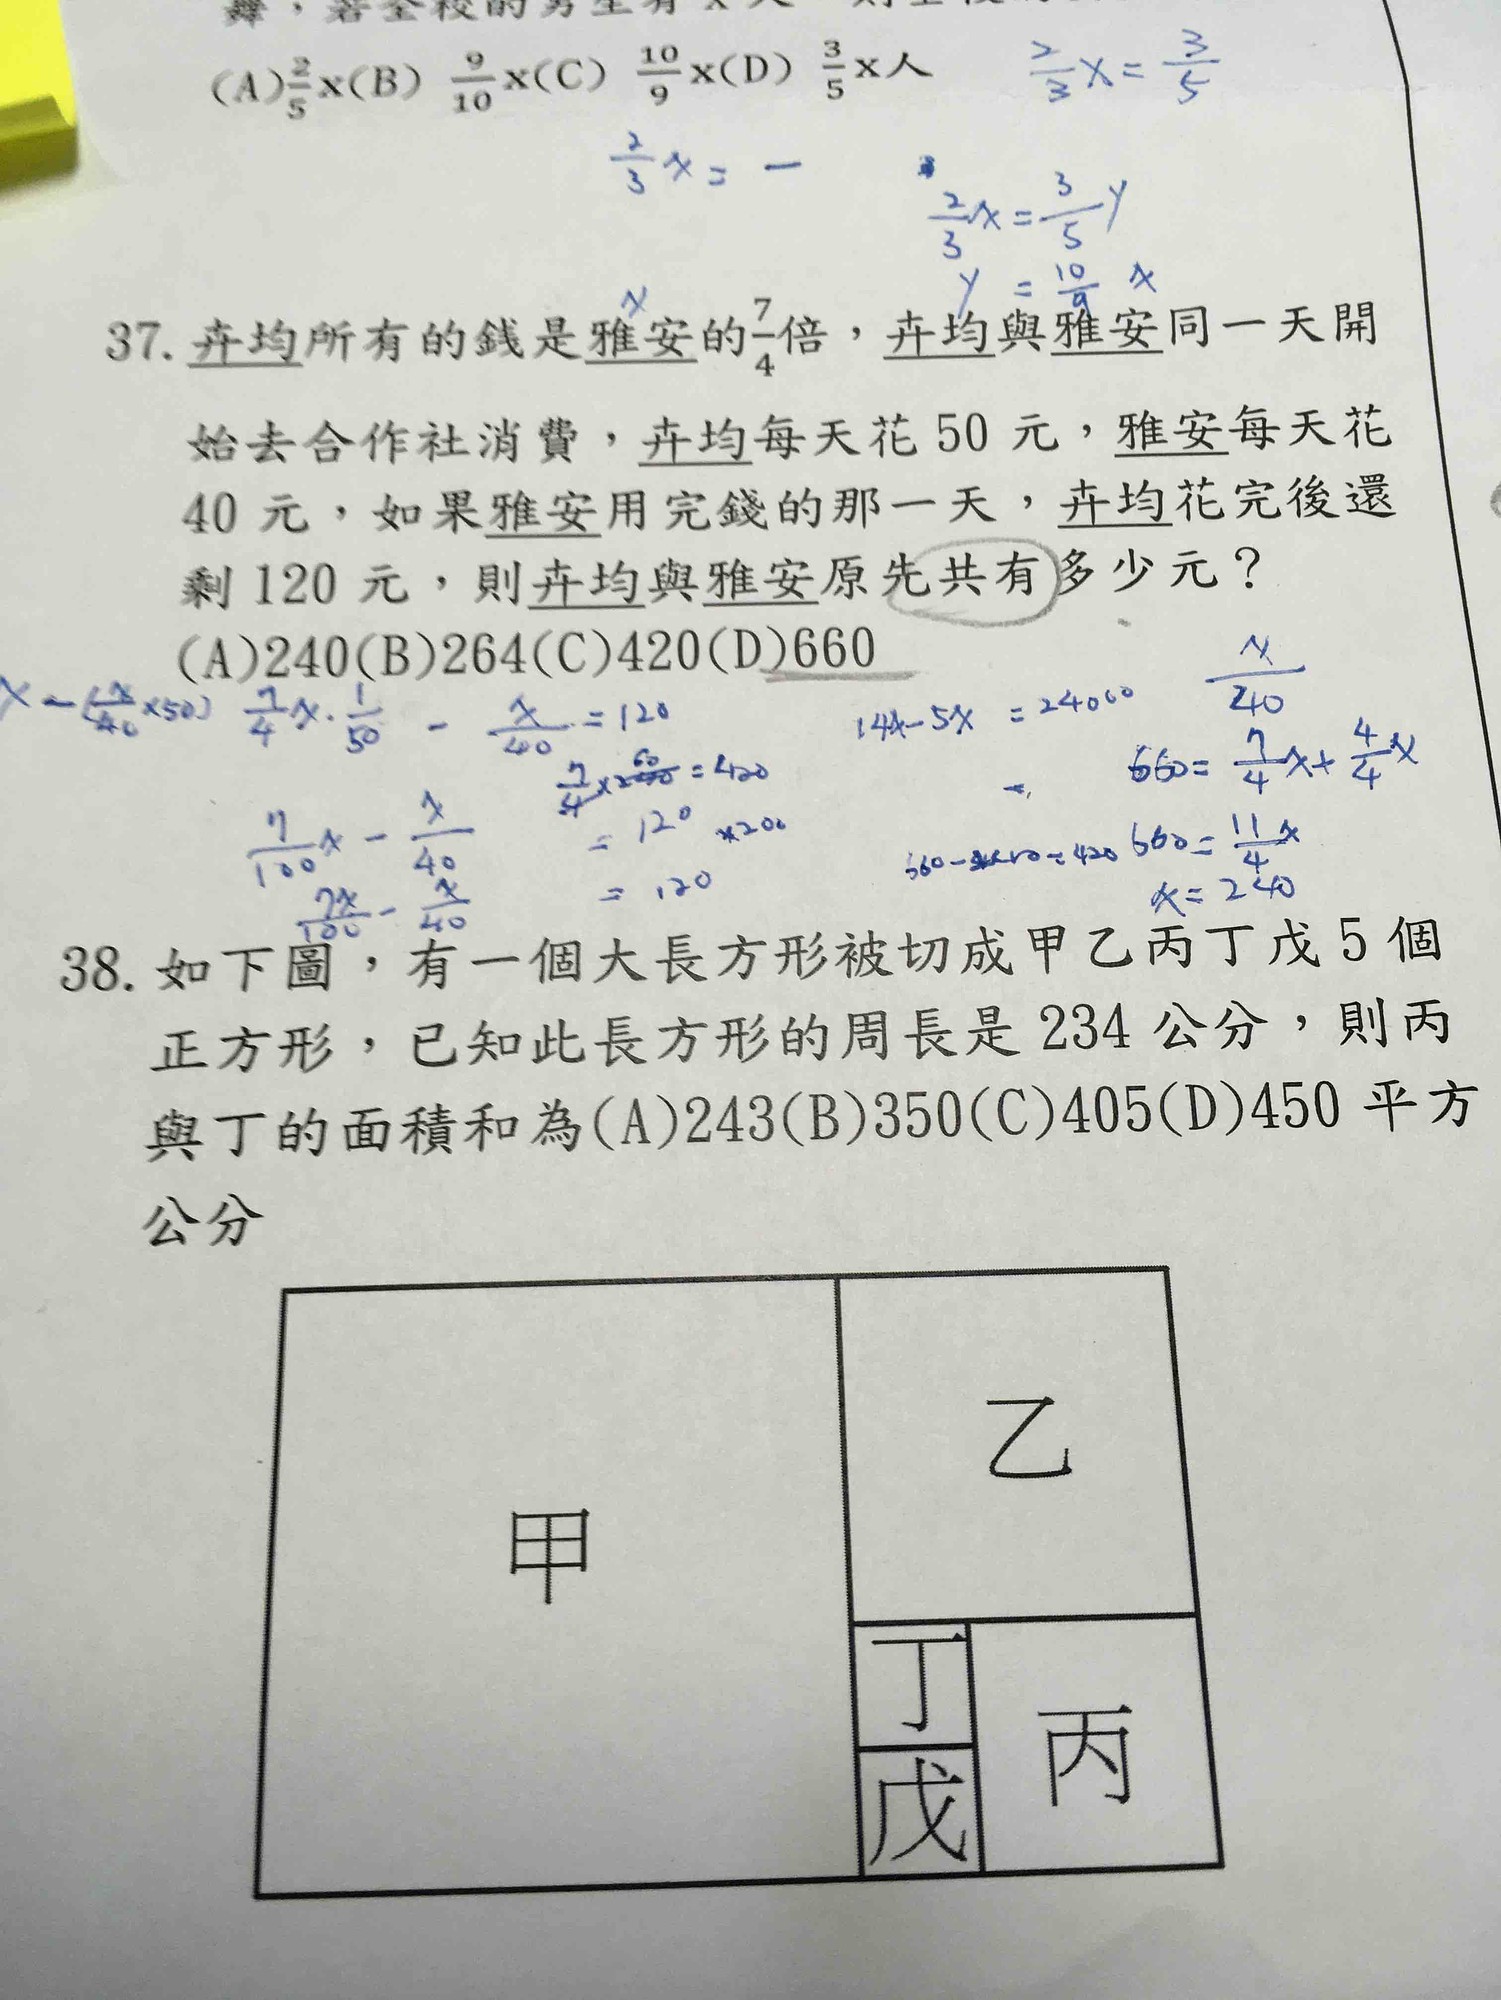 (A)2/5x(B) 9/10x(C) 10/9x(D) 3/5x人
2/3x = 3/5
2/3x = -
2/3x = 3/5y
y = 10/9 x
x
37. 卉均所有的錢是雅安的7/4倍，卉均與雅安同一天開
始去合作社消費，卉均每天花 50 元，雅安每天花
40 元，如果雅安用完錢的那一天，卉均花完後還
剩 120 元，則卉均與雅安原先共有多少元？
(A)240(B)264(C)420(D)660
x-(x/40×50) 7/4x·1/50 - x/40 = 120
14x-5x = 24000
x/40
7/4× 60 = 420
660= 7/4x+4/4x
7/100x - x/40 = 120 ×200
660=11/4x
7x/100 - x/40 = 120
x=240
38. 如下圖，有一個大長方形被切成甲乙丙丁戊 5 個
正方形，已知此長方形的周長是 234 公分，則丙
與丁的面積和為(A)243(B)350(C)405(D)450 平方
公分
甲
乙
丁
丙
戊